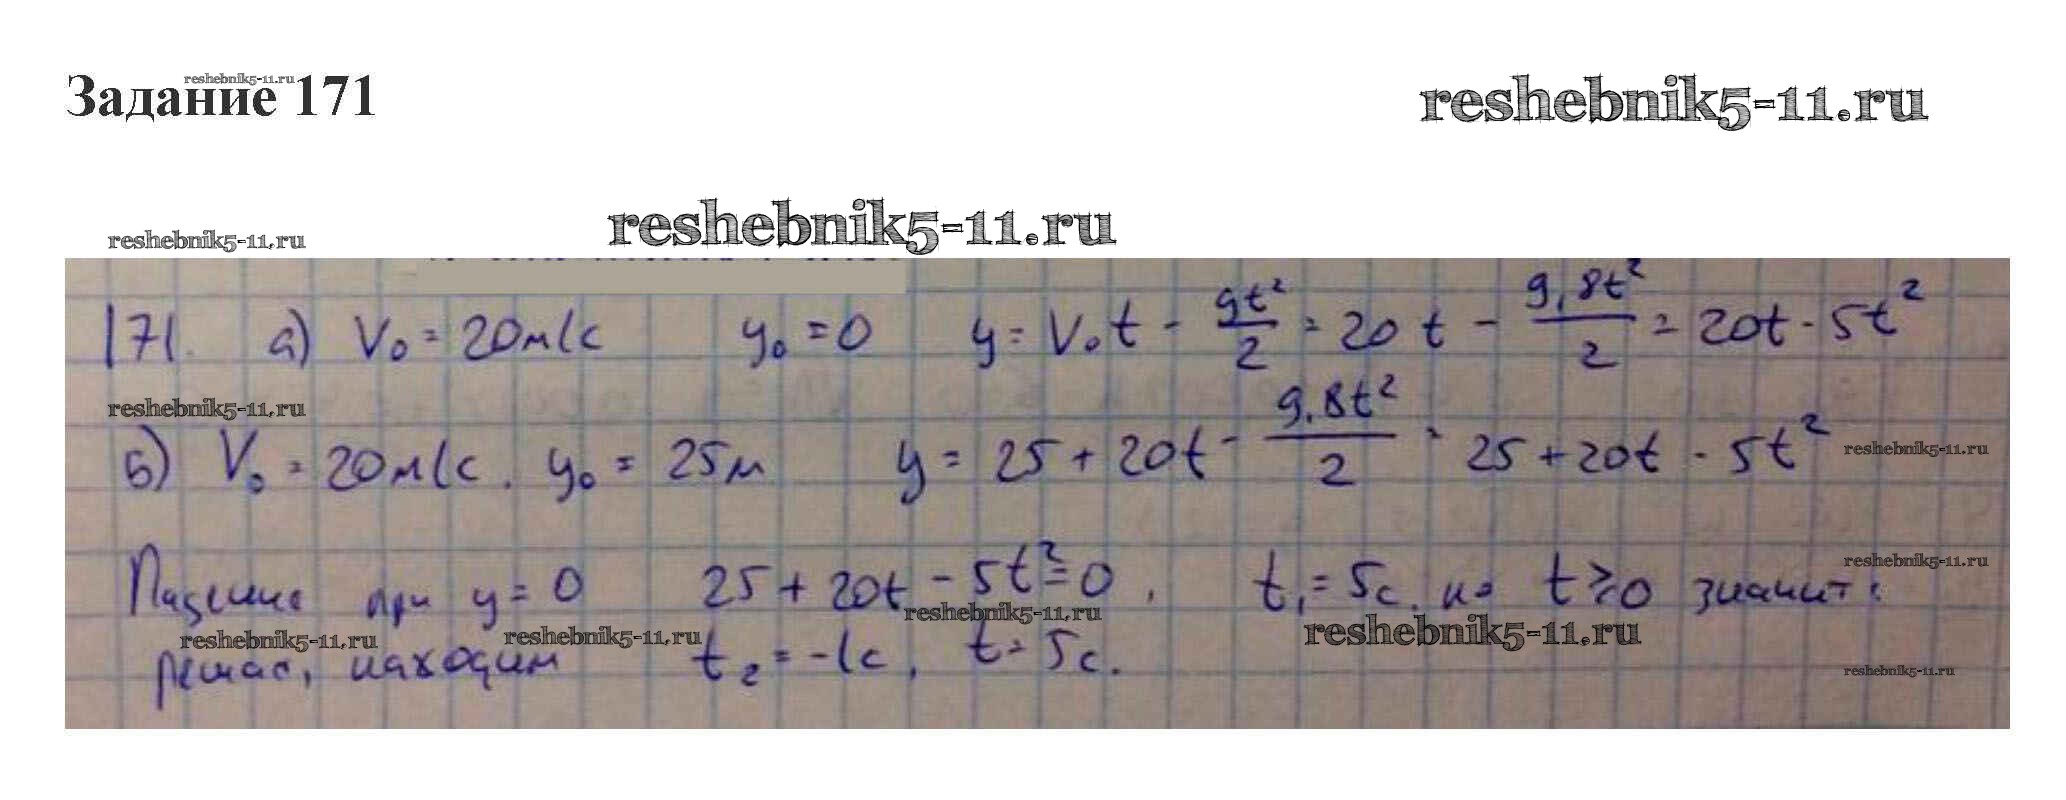 Задание 171
reshebnik5-11.ru
reshebnik5-11.ru
reshebnik5-11.ru
reshebnik5-11.ru
171. а) V₀ = 20м/с y₀ = 0 y = V₀t - gt²/2 = 20t - 9,8t²/2 = 20t - 5t²
reshebnik5-11.ru
б) V₀ = 20м/с, y₀ = 25м y = 25 + 20t - 9,8t²/2 = 25 + 20t - 5t²
reshebnik5-11.ru
reshebnik5-11.ru
Падение при y = 0 25 + 20t - 5t² = 0, t₁ = 5с, но t ≥ 0 значит:
reshebnik5-11.ru
reshebnik5-11.ru
reshebnik5-11.ru
reshebnik5-11.ru
решая, находим t₂ = -1с, t = 5с.
reshebnik5-11.ru